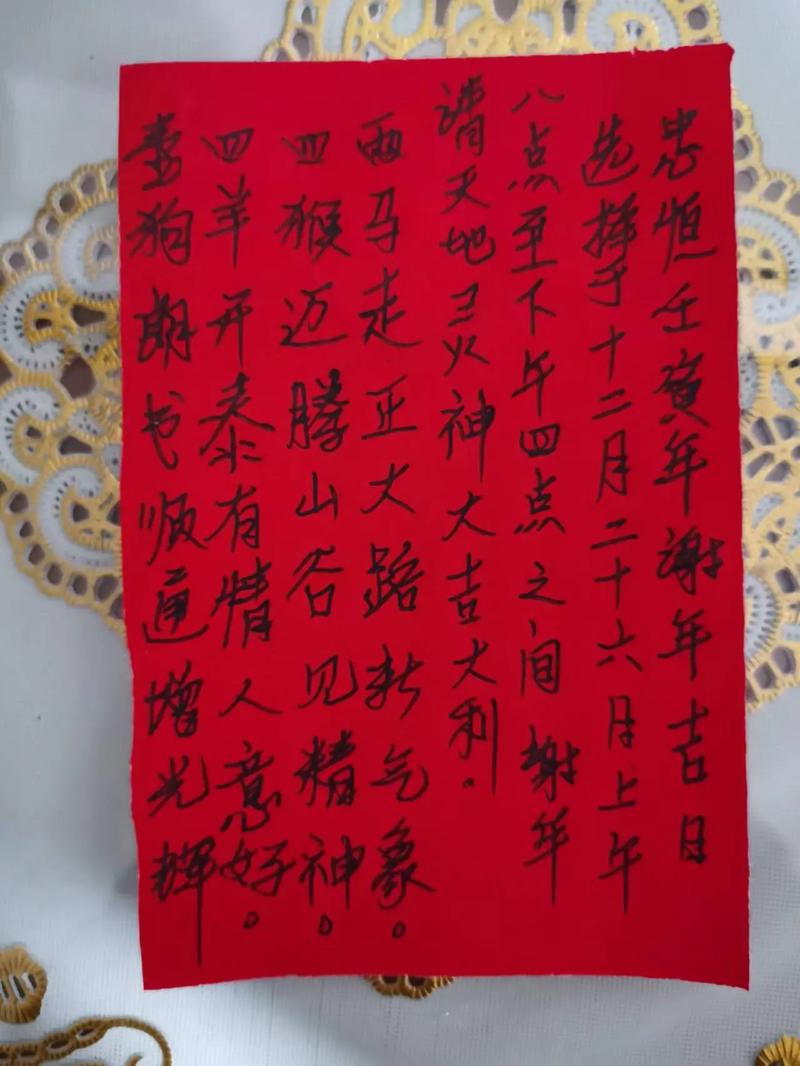 忠恒壬寅年谢年吉日
选择于十二月二十六日上午
八点至下午四点之间谢年
请天地火神大吉大利。
两马走正大路新气象。
四猴迈腾山谷见精神。
四羊开泰有情人意好。
狗期书顺通增光辉